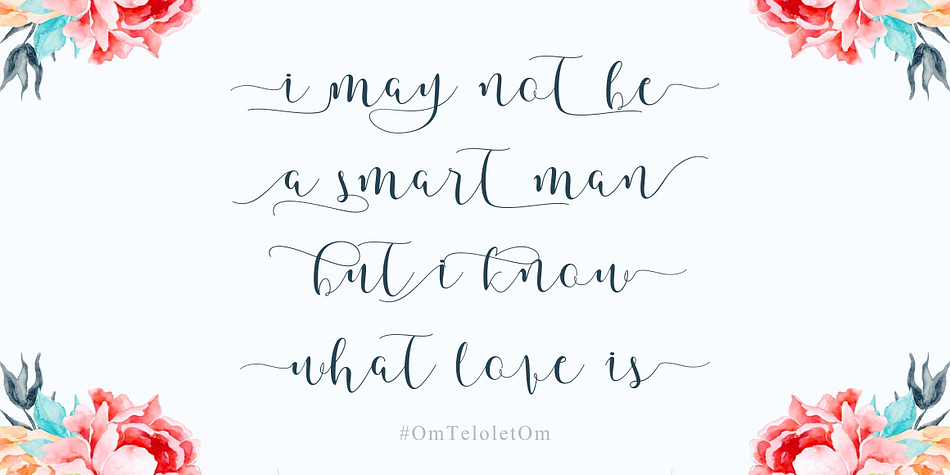 i may not be
a smart man
but i know
what love is
#OmTeloletOm